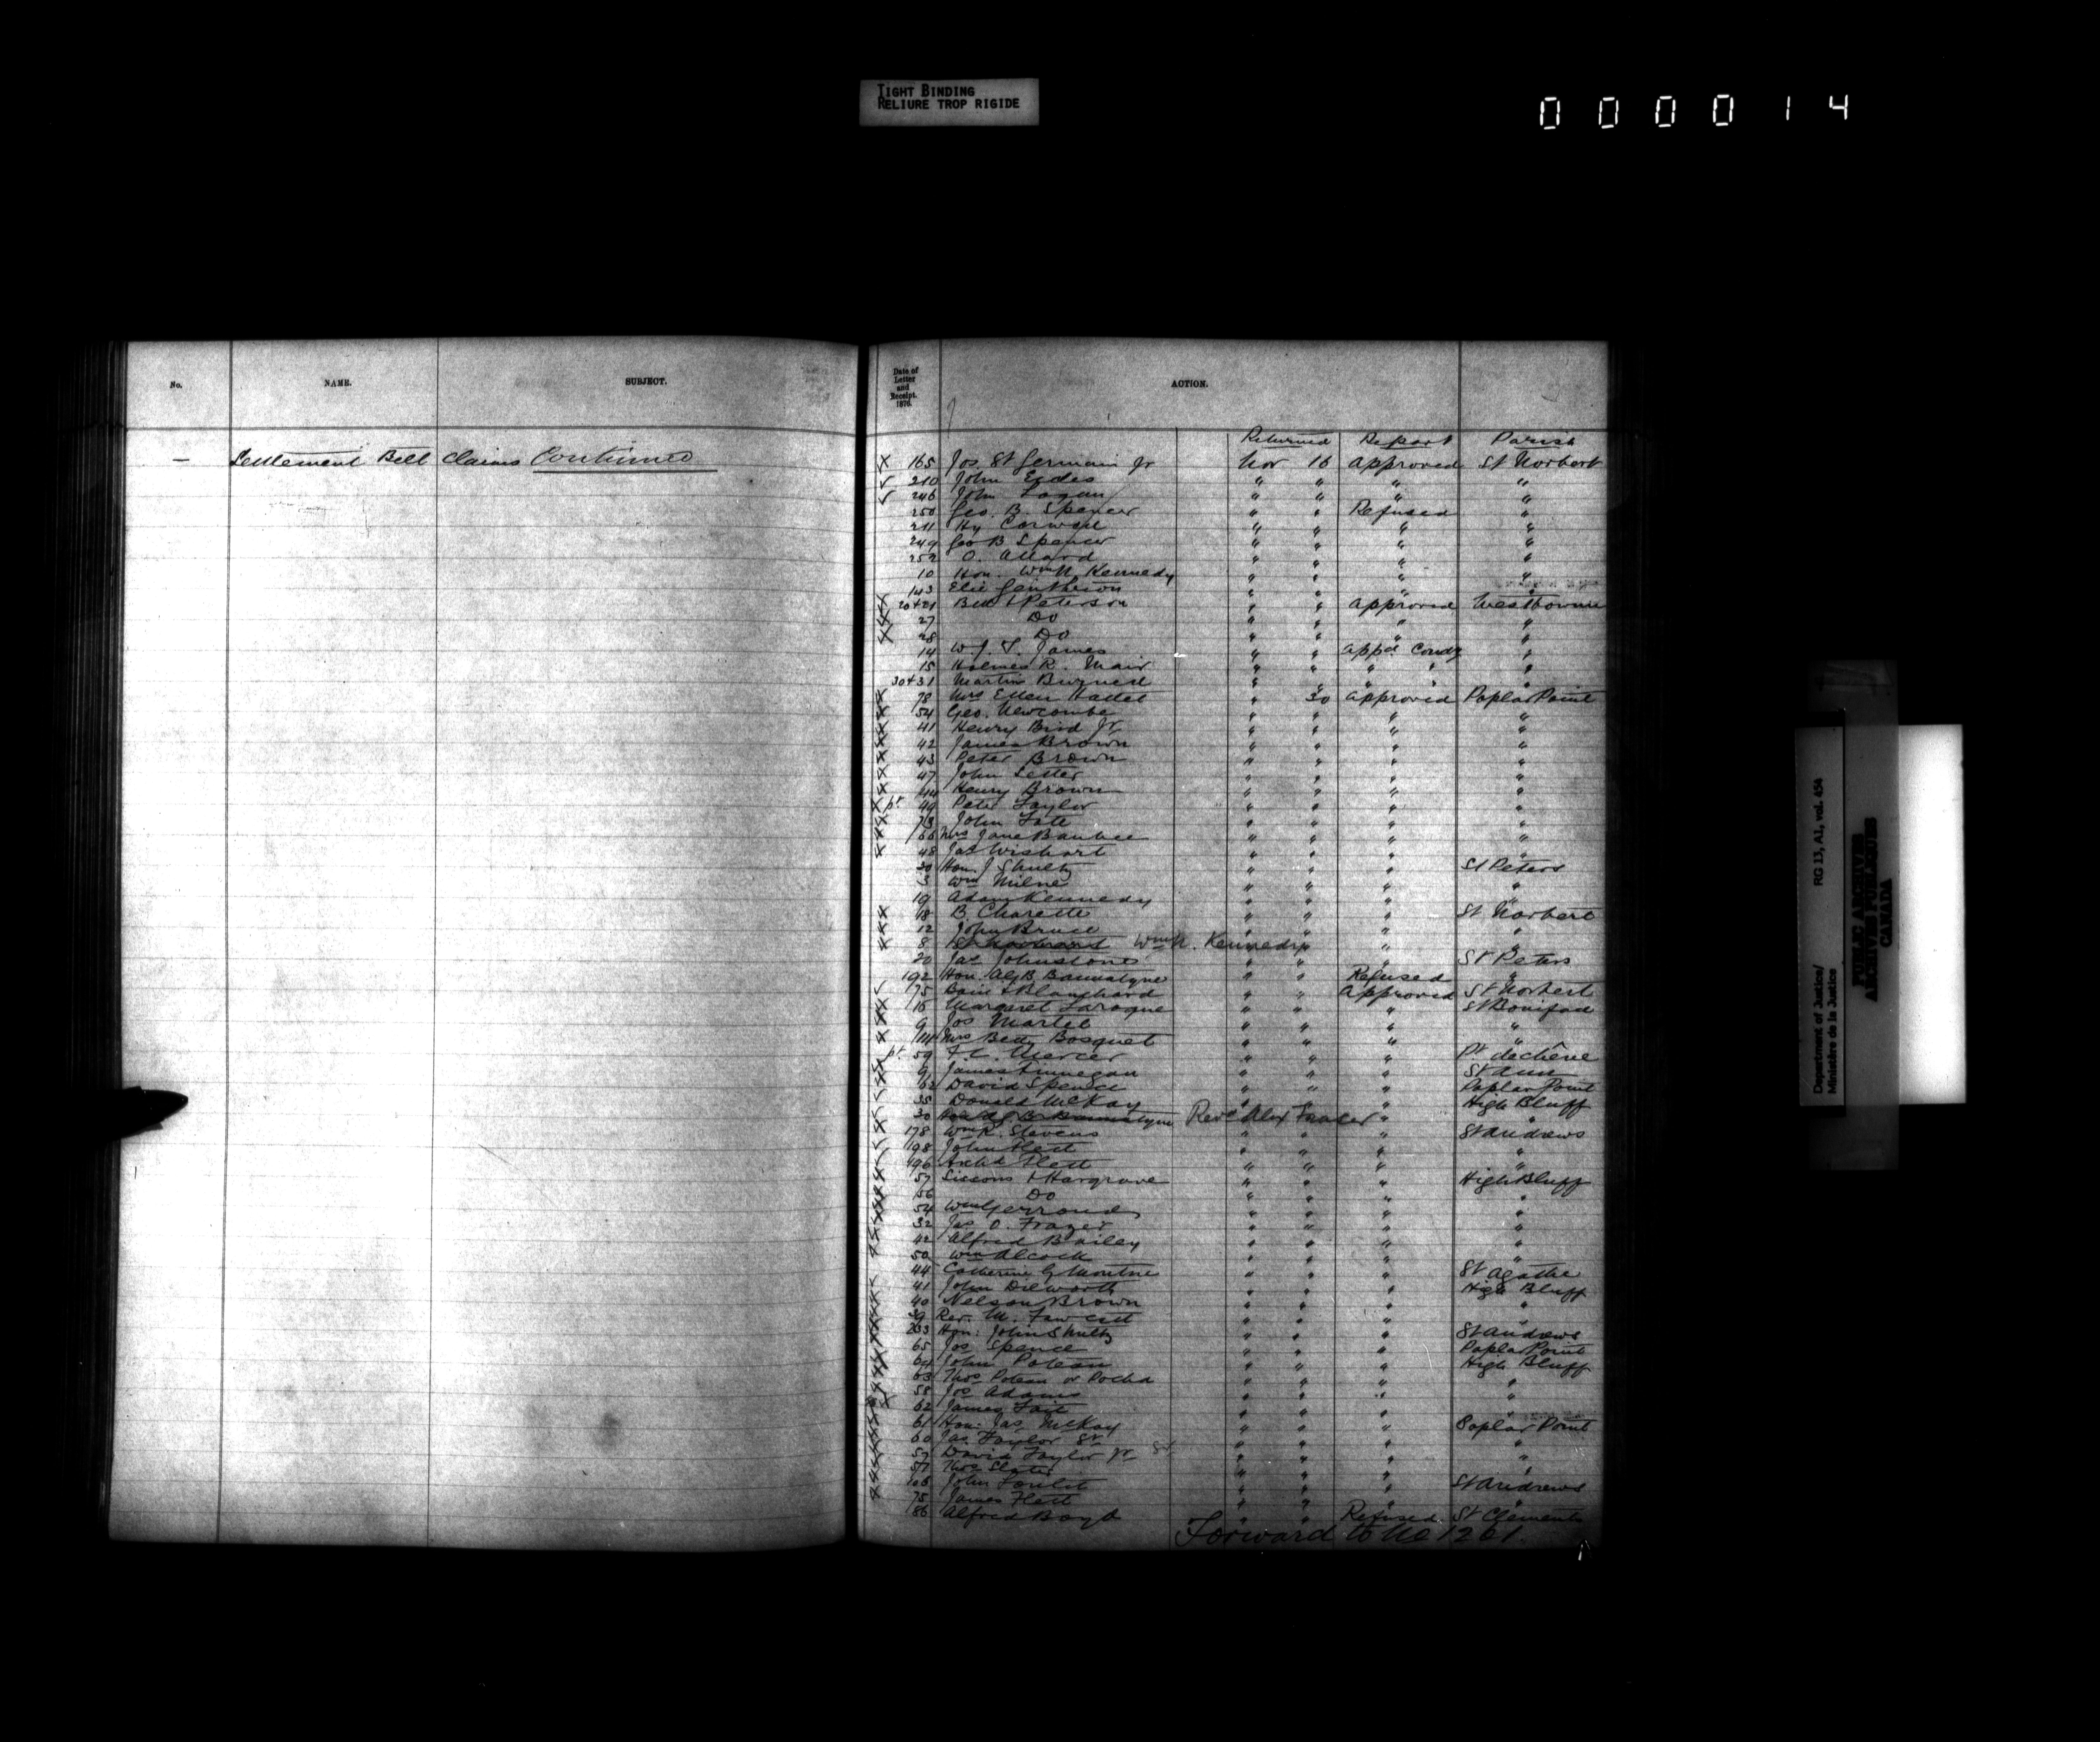 TIGHT BINDING
RELIURE TROP RIGIDE
000014
No. NAME. SUBJECT.
— Settlement Belt Claims Continued
Date of Letter and Receipt. 1876. ACTION.
Returned Report Parish
X 165 Jos. St Germain Jr Nov 16 Approved St Norbert
210 John Eccles " " " "
246 John Logan " " " "
250 Geo. B. Spencer " " Refused "
211 Hy " " " "
249 Geo B Spencer " " " "
252 O. Allard " " " "
10 Hon. Wm N. Kennedy " " " "
143 Elie Genthon " " " "
20+21 & Peterson " " Approved Westbourne
27 Do " " " "
28 Do " " " "
14 W. J. James " " Appd Condy "
15 Holmes R. Mair " " " " "
30+31 Martin " " " " "
78 Mrs Ellen " 30 Approved Poplar Point
54 Geo. Newcombe " " " "
41 Henry Bird Jr " " " "
42 James Brown " " " "
43 Peter Brown " " " "
47 John Letter " " " "
44 Henry Brown " " " "
pt 49 Peter Taylor " " " "
73 John Tate " " " "
66 Mrs Jane " " " "
48 Jas Wishart " " " "
30 Hon. J Shultz " " " St Peters
3 Wm Milne " " " "
19 Adam Kennedy " " " "
18 B. Charette " " " St Norbert
12 John Bruce " " " "
8 Wm N. Kennedy " " "
20 Jas Johnstone " " " St Peters
192 Hon. A G B Bannatyne " " Refused "
75 Bain & Blanchard " " Approved St Norbert
16 Margaret Laroque " " " St Bonifad
9 Jos Martel " " " "
114 Mrs Bosquet " " " "
pt 59 F. C. Mercer " " " Pt dechêne
9 James Finnegan " " " St Ann
62 David Spence " " " Poplar Point
35 Donald McKay " " " High Bluff
30 Hon A G B Bannatyne Revd Alex Fraser " "
178 Wm R. Stevens " " " St Andrews
198 John Flett " " " "
196 Archd Flett " " " "
57 Sissons & Hargrave " " " High Bluff
56 Do " " " "
54 Wm Gerrond " " " "
32 Jas O. Frazer " " " "
42 Alfred Bailey " " " "
50 Wm Alcock " " " "
44 Catherine G " " " St Agathe
41 John Dilworth " " " High Bluff
40 Nelson Brown " " " "
39 Rev. M. Fawcett " " " "
233 Hon: John Shultz " " " St Andrews
65 Jos Spence " " " Poplar Point
64 John Poteau " " " High Bluff
63 Thos Poteau or Pocha " " " "
58 Jos Adams " " " "
62 James Tait " " " "
61 Hon: Jas McKay " " " Poplar Point
60 Jas Taylor Sr " " " "
59 David Taylor Jr " " " "
57 Thos Slater " " " "
103 John " " " St Andrews
75 James Flett " " " "
86 Alfred Boyd " " Refused St Clements
Forward to No 1261.
Department of Justice/
Ministère de la Justice
RG 13, A1, vol. 454
PUBLIC ARCHIVES
ARCHIVES PUBLIQUES
CANADA